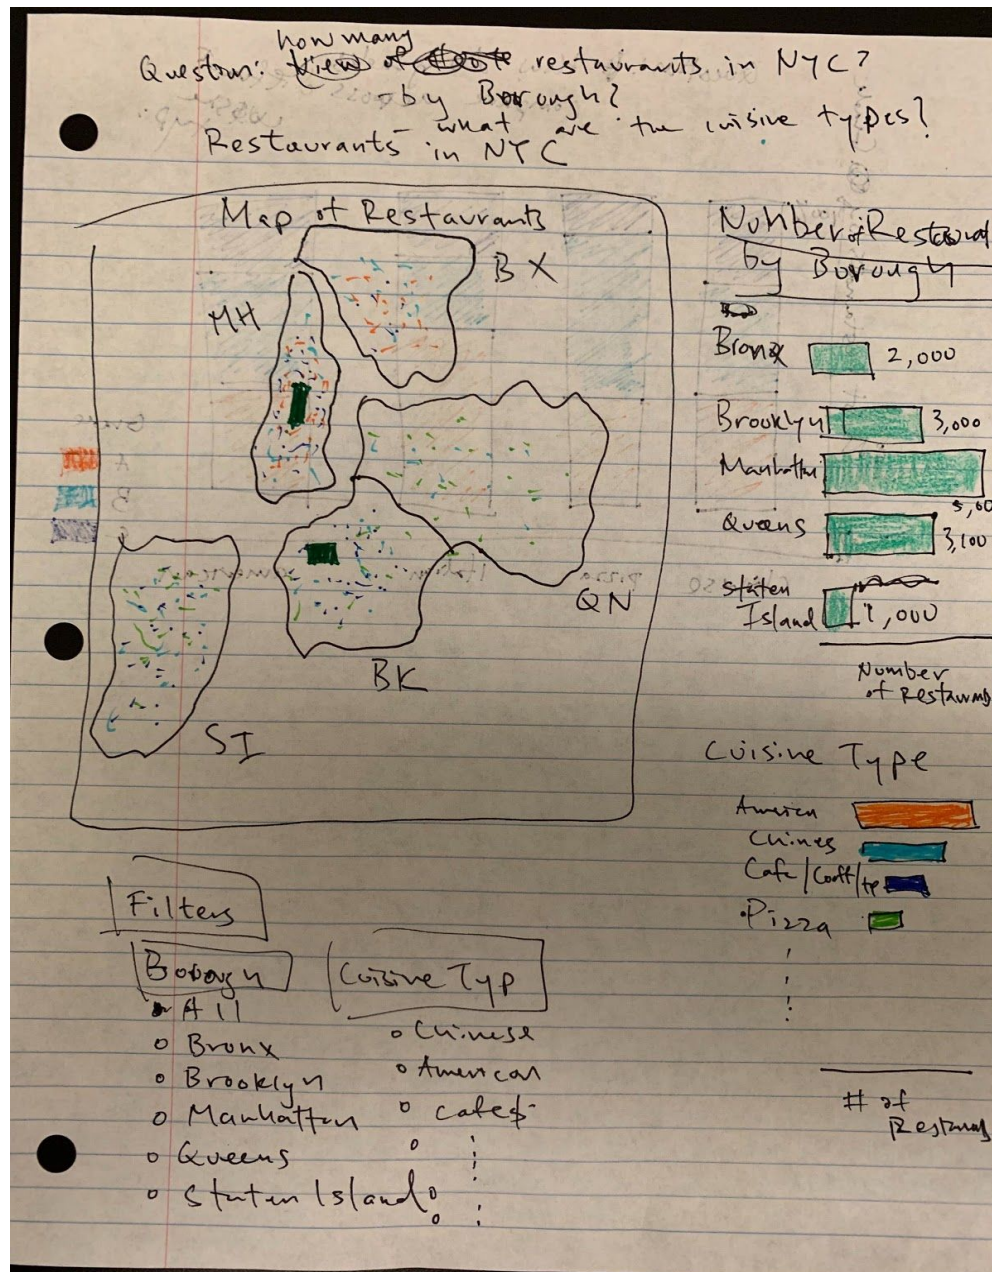 how many
Question: View of restaurants in NYC?
- by Borough?
- what are the cuisine types?
Restaurants in NYC
Map of Restaurants
BX
MH
QN
BK
SI
Number of Restaurant
by Borough
Bronx 2,000
Brooklyn 3,000
Manhattan
5,00
Queens 3,100
Staten
Island 1,000
Number
of Restaurants
Cuisine Type
American
Chines
Cafe/Coff/te
Pizza
# of
Restaurants
Filters
Borough
Cuisine Typ
All
Bronx
Brooklyn
Manhattan
Queens
Staten Island
Chinese
American
cafes